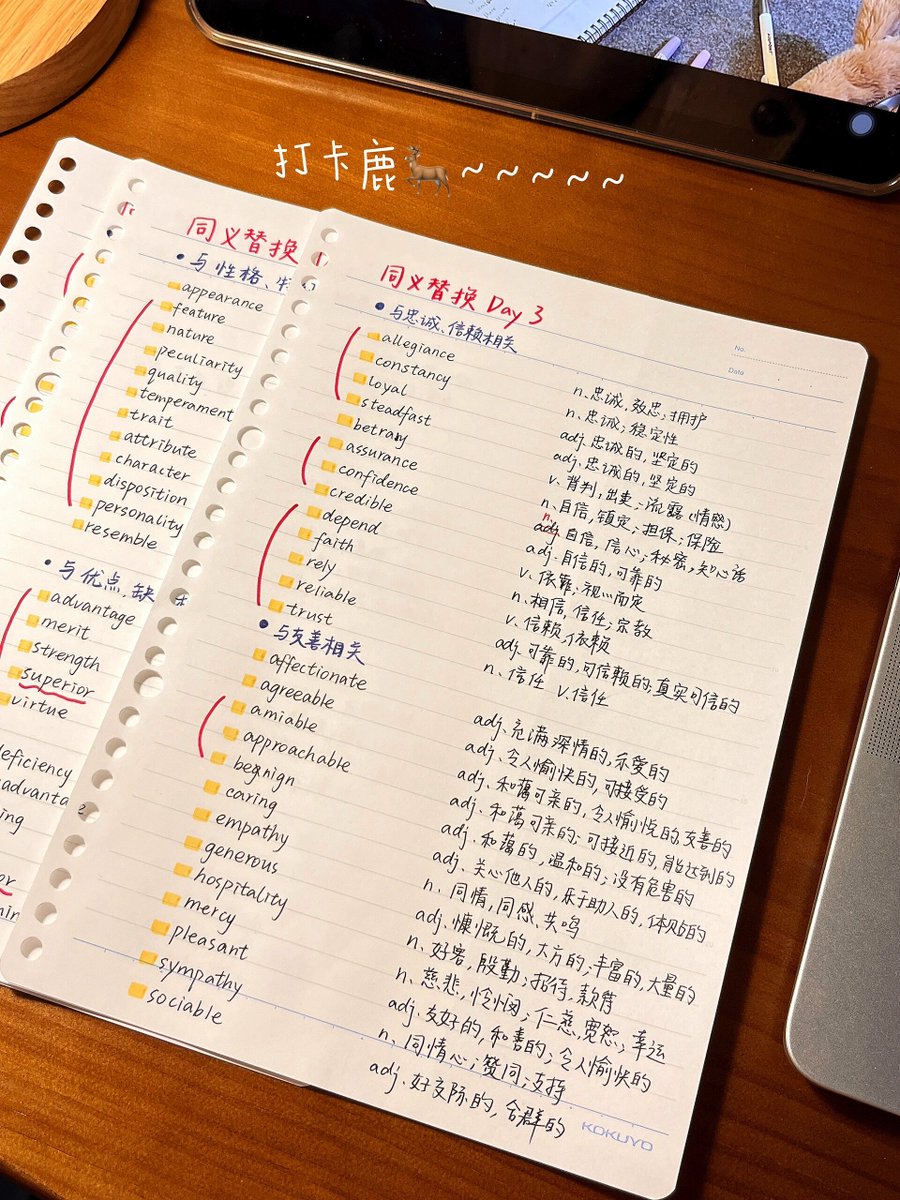 打卡鹿~~~~~
同义替换
• 与性格、
appearance
feature
nature
peculiarity
quality
temperament
trait
attribute
character
disposition
personality
resemble
• 与优点、缺
advantage
merit
strength
superior
virtue
eficiency
advanta
ing
or
同义替换 Day 3
• 与忠诚、信赖相关
allegiance n、忠诚，效忠；拥护
constancy n、忠诚；稳定性
loyal adj、忠诚的，坚定的
steadfast adj、忠诚的，坚定的
betray v、背判，出卖；流露（情感）
assurance n、自信，镇定；担保；保险
confidence n、自信，信心；秘密，知心话
credible adj、自信的，可靠的
depend v、依靠；视…而定
faith n、相信，信任；宗教
rely v、信赖，依赖
reliable adj、可靠的，可信赖的；真实可信的
trust n、信任 v、信任
• 与友善相关
affectionate adj、充满深情的，示爱的
agreeable adj、令人愉快的，可接受的
amiable adj、和蔼可亲的，令人愉悦的，友善的
approachable adj、和蔼可亲的；可接近的，能达到的
benign adj、和蔼的，温和的；没有危害的
caring adj、关心他人的，乐于助人的，体贴的
empathy n、同情，同感、共鸣
generous adj、慷慨的，大方的；丰富的，大量的
hospitality n、好客，殷勤；招待，款待
mercy n、慈悲，怜悯；仁慈，宽恕；幸运
pleasant adj、友好的，和善的；令人愉快的
sympathy n、同情心；赞同；支持
sociable adj、好交际的，合群的
No.
Date
KOKUYO